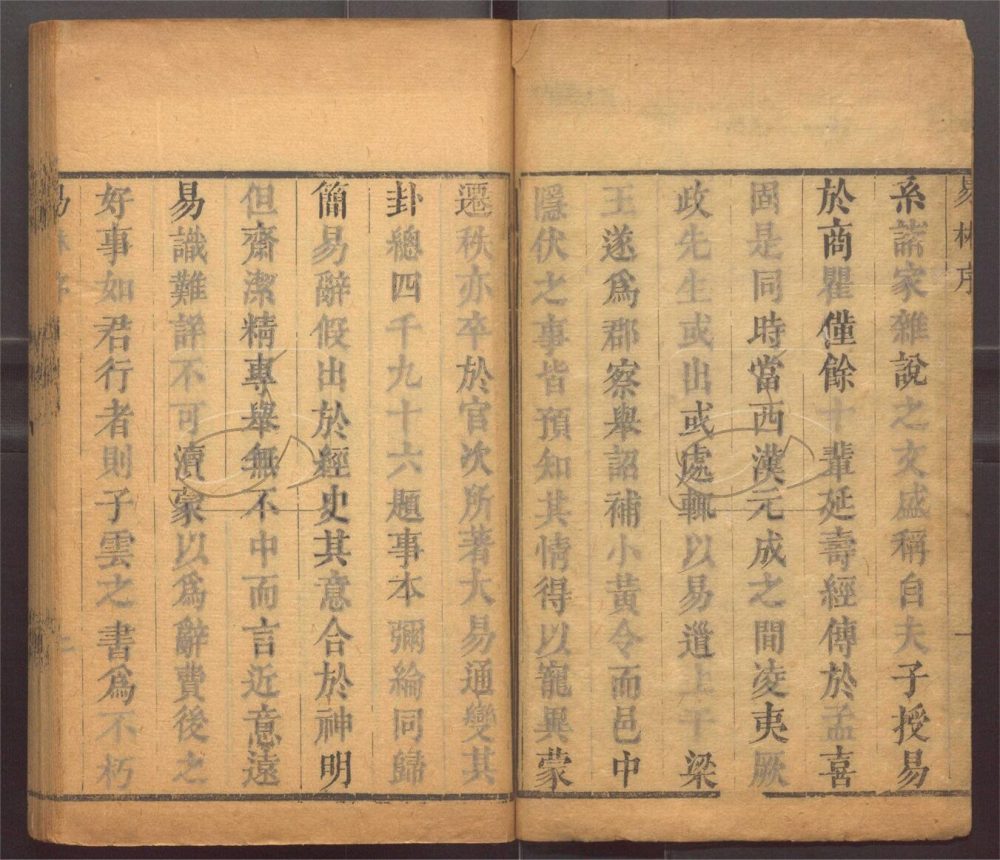 易林序
一
系諸家雜說之文盛稱自夫子授易
於商瞿僅餘十輩延壽經傳於孟喜
固是同時當西漢元成之間凌夷厥
政先生或出或處輒以易道上干梁
王遂爲郡察舉詔補小黃令而邑中
隱伏之事皆預知其情得以寵異蒙
遷秩亦卒於官次所著大易通變其
卦總四千九十六題事本彌綸同歸
簡易辭假出於經史其意合於神明
但齋潔精專舉無不中而言近意遠
易識難詳不可瀆蒙以爲辭費後之
好事如君行者則子雲之書爲不朽
易林序